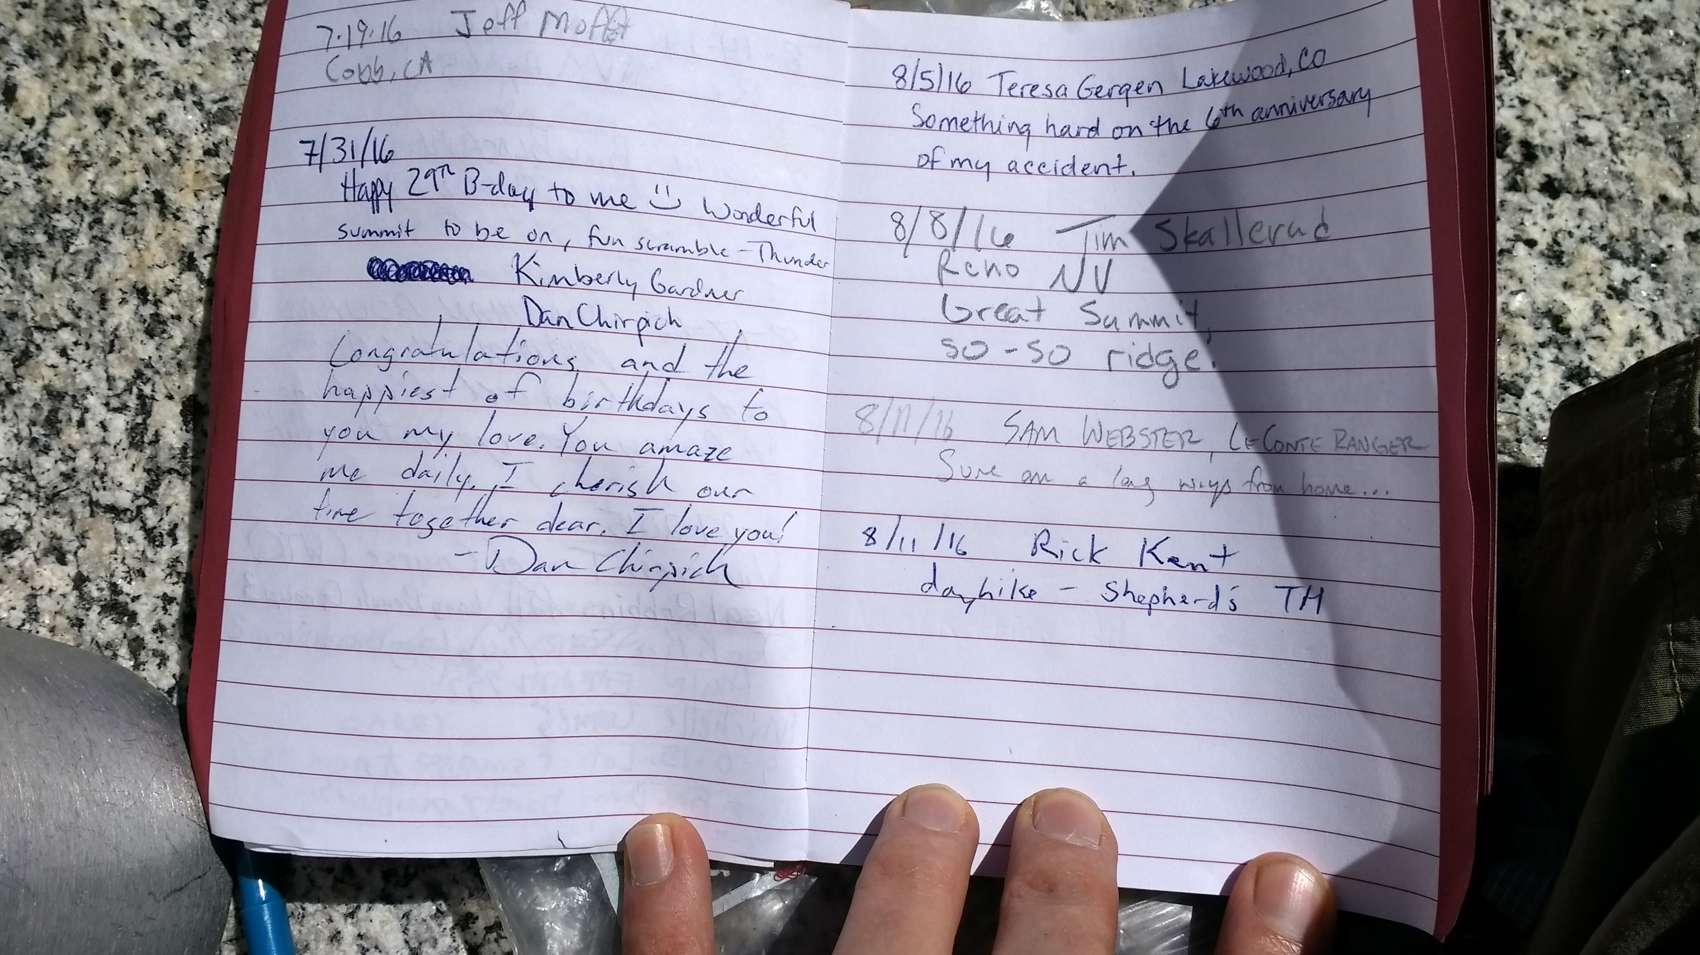 7.19.16 Jeff Moffat
Cobb, CA
7/31/16
Happy 29th B-day to me :) Wonderful
summit to be on, fun scramble - Thunder
Kimberly Gardner
Dan Chirpich
Congratulations and the
happiest of birthdays to
you my love. You amaze
me daily. I cherish our
time together dear. I love you!
- Dan Chirpich
8/5/16 Teresa Gergen Lakewood, CO
Something hard on the 6th anniversary
of my accident.
8/8/16 Tim Skallerud
Reno NV
Great Summit,
so-so ridge.
8/11/16 SAM WEBSTER, LECONTE RANGER
Sure am a long ways from home...
8/11/16 Rick Kent
dayhike - Shepherd's TH